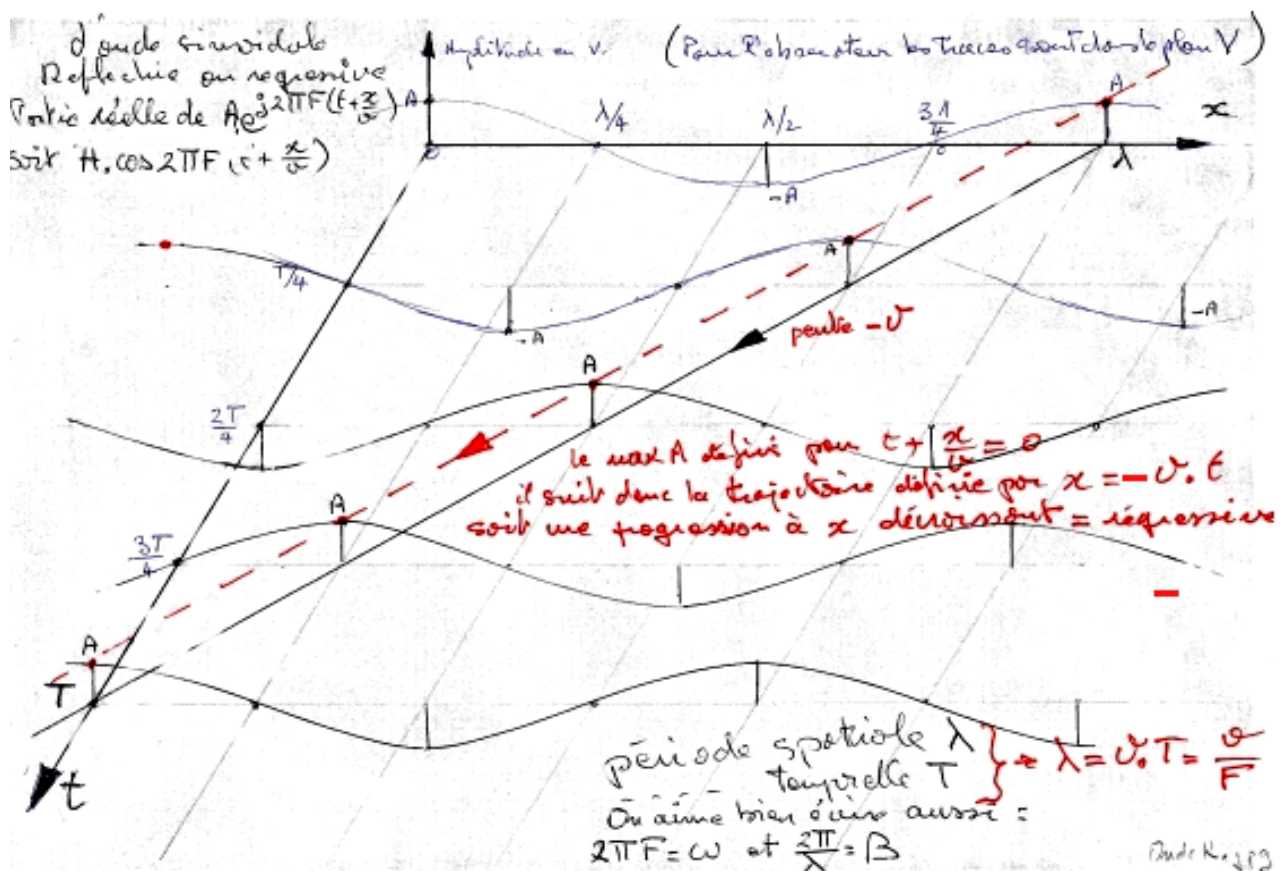 d'onde sinusoidale
Reflechie ou regressive
Partie réelle de A.e^{j2πF(t+x/v)}
soit A.cos 2πF(t+x/v)
Amplitude en V.
(Pour l'observateur les traces sont dans le plan V)
A
A
0
λ/4
λ/2
3λ/4
x
λ
-A
T/4
A
-A
-A
pente -v
2T/4
A
le max A défini pour t + x/v = 0
il suit donc la trajectoire définie par x = - v.t
soit une progression à x décroissant = régressive
3T/4
A
A
T
t
période spatiale λ
temporelle T
} → λ = v.T = v/F
On aime bien écrire aussi =
2πF = ω et 2π/λ = β